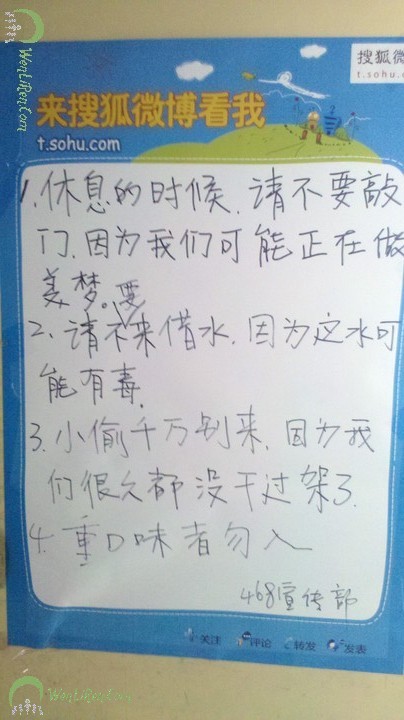 WenLiRen.Com
搜狐微
t.sohu.c
来搜狐微博看我
t.sohu.com
1.休息的时候.请不要敲
门.因为我们可能正在做
美梦。
要
2、请不来借水.因为这水可
能有毒.
3.小偷千万别来.因为我
们很久都没干过架了.
4.重口味者勿入
468宣传部
关注 评论 转发 发表
WenLiRen.Com